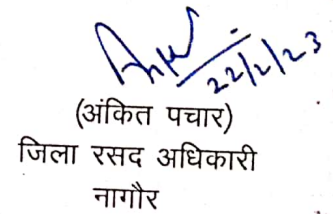 22/2/23
(अंकित पचार)
जिला रसद अधिकारी
नागौर